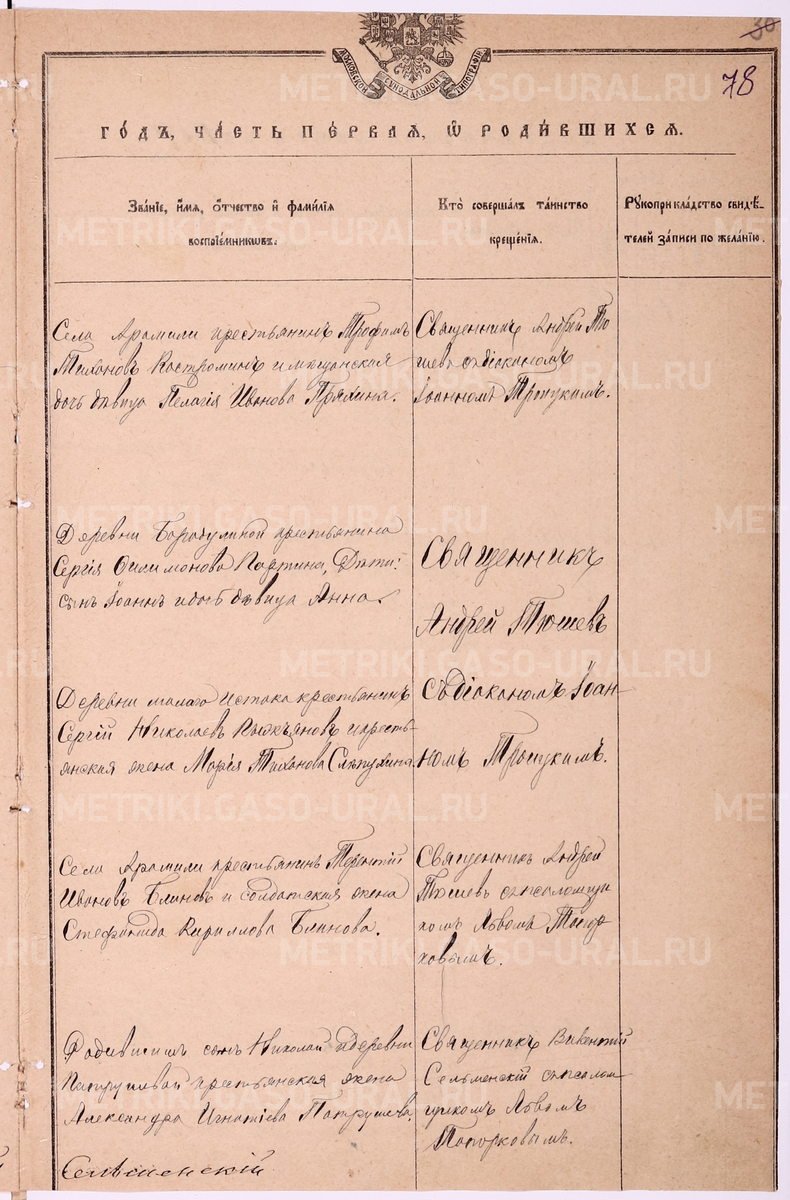 30
78
МОСКОВСКОЙ СѴНОДАЛЬНОЙ ТИПОГРАФІИ
ГО́ДЪ, ЧА́СТЬ ПЕ́РВАЯ, Ѽ РОДИ́ВШИХСЯ.
Зва́ніе, и҆́мя, о҆́тчество и҆ фами́лія
воспріе́мникѡвъ.
Кто̀ соверша́лъ та́инство
креще́нія.
Рꙋкоприкла́дство свидѣ́-
телей за́писи по жела́нію.
Села Арамили крестьянинъ Трофимъ
Тихоновъ Костроминъ и мѣщанская
дочь дѣвица Пелагія Иванова Пряхина.
Священникъ Андрей Тю
шевъ съ діакономъ
Іоанномъ Троицкимъ.
Деревни Бородулиной крестьянина
Сергія Филимонова дѣти:
сынъ Іоаннъ и дочь дѣвица Анна.
Священникъ
Андрей Тюшевъ
съ діакономъ Іоан-
номъ Троицкимъ.
Деревни малаго Истока крестьянинъ
Сергій Николаевъ и кресть-
янская жена Марія Тиханова
Села Арамили крестьянинъ Терентій
Ивановъ Блиновъ и солдатская жена
Стефанида Кирилова Блинова.
Священникъ Андрей
Тюшевъ съ псаломщи
комъ Львомъ Топор
ковымъ.
сынъ Николай и деревни
Патрушевой крестьянская жена
Александра Игнатіева Патрушева.
Священникъ Викентій
Сельменскій съ псалом
щикомъ Львомъ
Топорковымъ.
METRIKI.GASO-URAL.RU